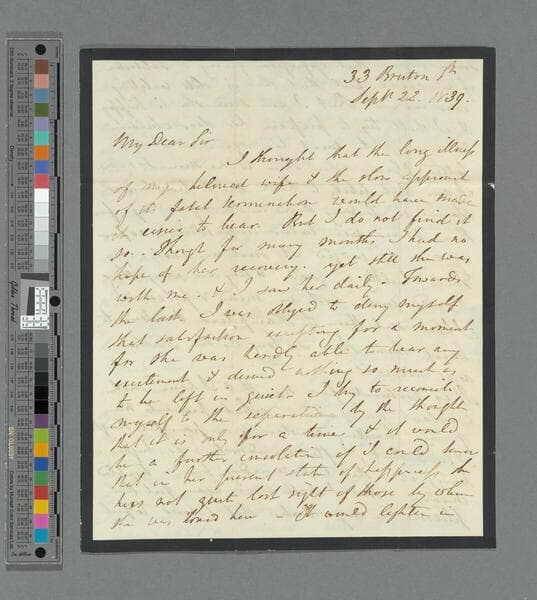 33 Bruton St
Sept 22. 1839.
My Dear Sir
I thought that the long illness
of my beloved wife & the slow approach
of its fatal termination would have made
it easier to bear. But I do not find it
so. Though for many months I had no
hope of her recovery. yet still she was
with me. & I saw her daily. Towards
the last I was obliged to deny myself
that satisfaction excepting for a moment
for she was hardly able to bear any
excitement & desired nothing so much as
to be left in quiet. I try to reconcile
myself to the separation by the thought
that it is only for a time & it would
be a further consolation if I could know
that in her present state of happiness she
has not quite lost sight of those by whom
she was loved here - It would lighten in